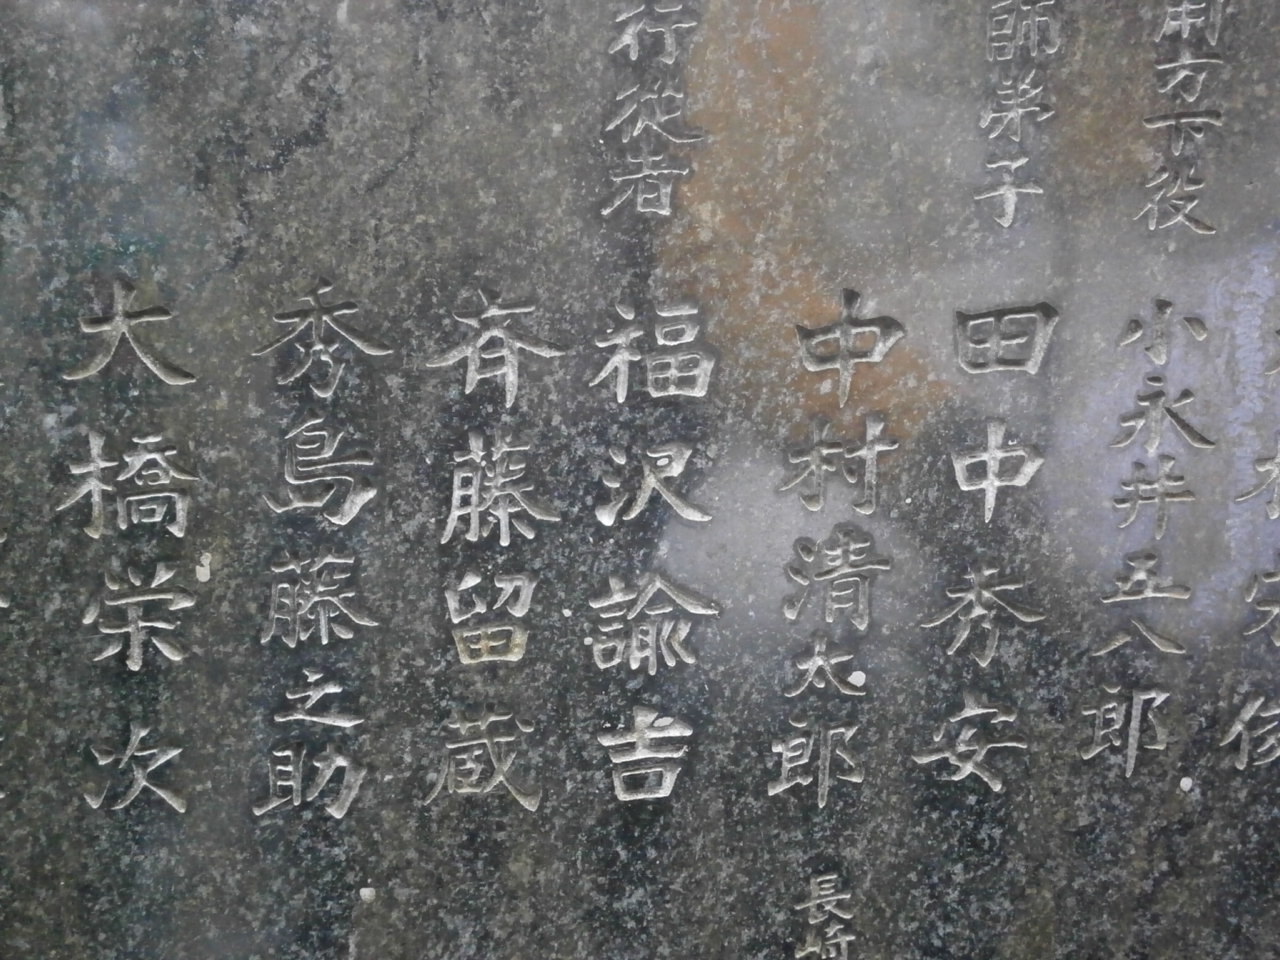 用方下役 小永井五八郎
師弟子 田中秀安
中村清太郎 長崎
行従者 福沢諭吉
斉藤留蔵
秀島藤之助
大橋栄次